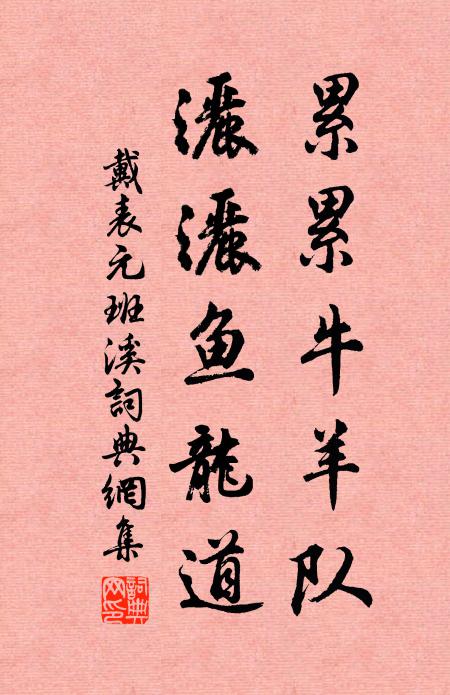 累累牛羊队
灑灑鱼龍道
戴表元班溪詞典網集
詞典网印